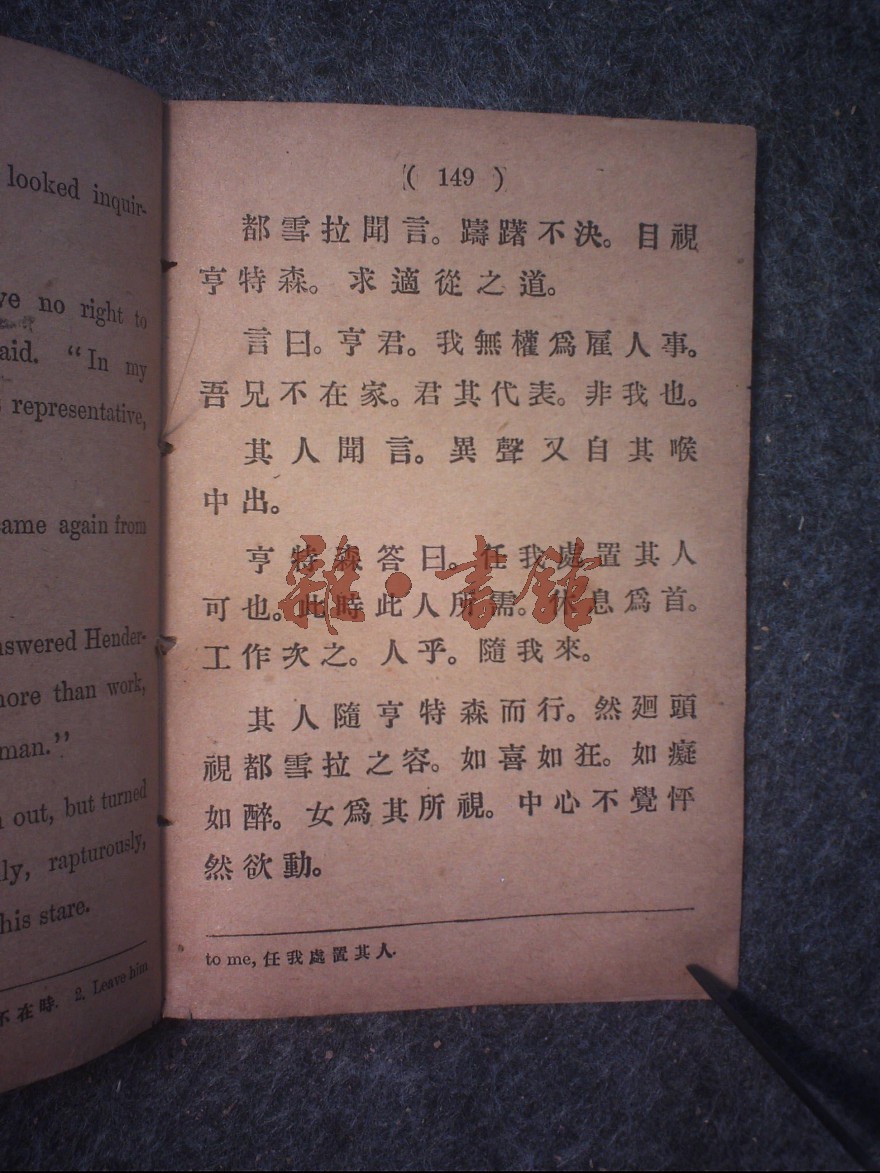 looked inquir-
no right to
said. "In my
representative,
came again from
answered Hender-
more than work,
man."
out, but turned
rapturously,
his stare.
不在時. 2. Leave him
( 149 )
都雪拉聞言。躊躇不決。目視
亨特森。求適從之道。
言曰。亨君。我無權爲雇人事。
吾兄不在家。君其代表。非我也。
其人聞言。異聲又自其喉
中出。
亨特森答曰。任我處置其人
可也。此時此人所需。休息爲首。
工作次之。人乎。隨我來。
其人隨亨特森而行。然廻頭
視都雪拉之容。如喜如狂。如癡
如醉。女爲其所視。中心不覺怦
然欲動。
to me, 任我處置其人.
雜·書館